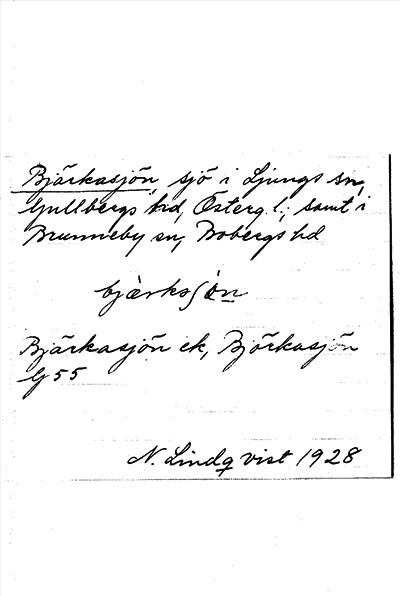 Bjärkasjön, sjö i Ljungs sn,
Gullbergs hd, Österg. l., samt i
Brunneby sn, Bobergs hd
bjärksjòn
Bjärkasjön ek, Björkasjön
G 55
N. Lindqvist 1928